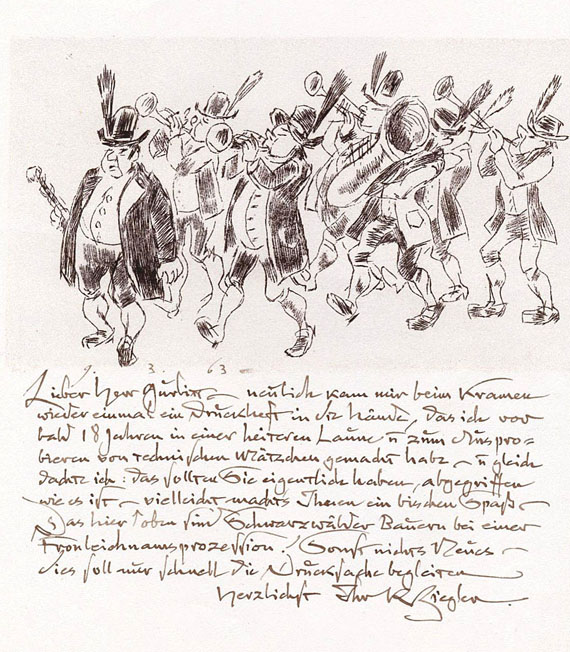 9. 3. 63 –
Lieber Herr Gurlitt – neulich kam mir beim Kramen
wieder einmal ein Druckheft in die Hände, das ich vor
bald 18 Jahren in einer heiteren Laune u zum Auspro=
bieren von technischen Mätzchen gemacht habe – u gleich
dachte ich: das sollten Sie eigentlich haben, abgegriffen
wie es ist – vielleicht machts Ihnen ein bischen Spaß –
Das hier oben sind Schwarzwälder Bauern bei einer
Fronleichnamsprozession. Sonst nichts Neues –
dies soll nur schnell die Drucksache begleiten
Herzlichst Ihr K Ziegler.